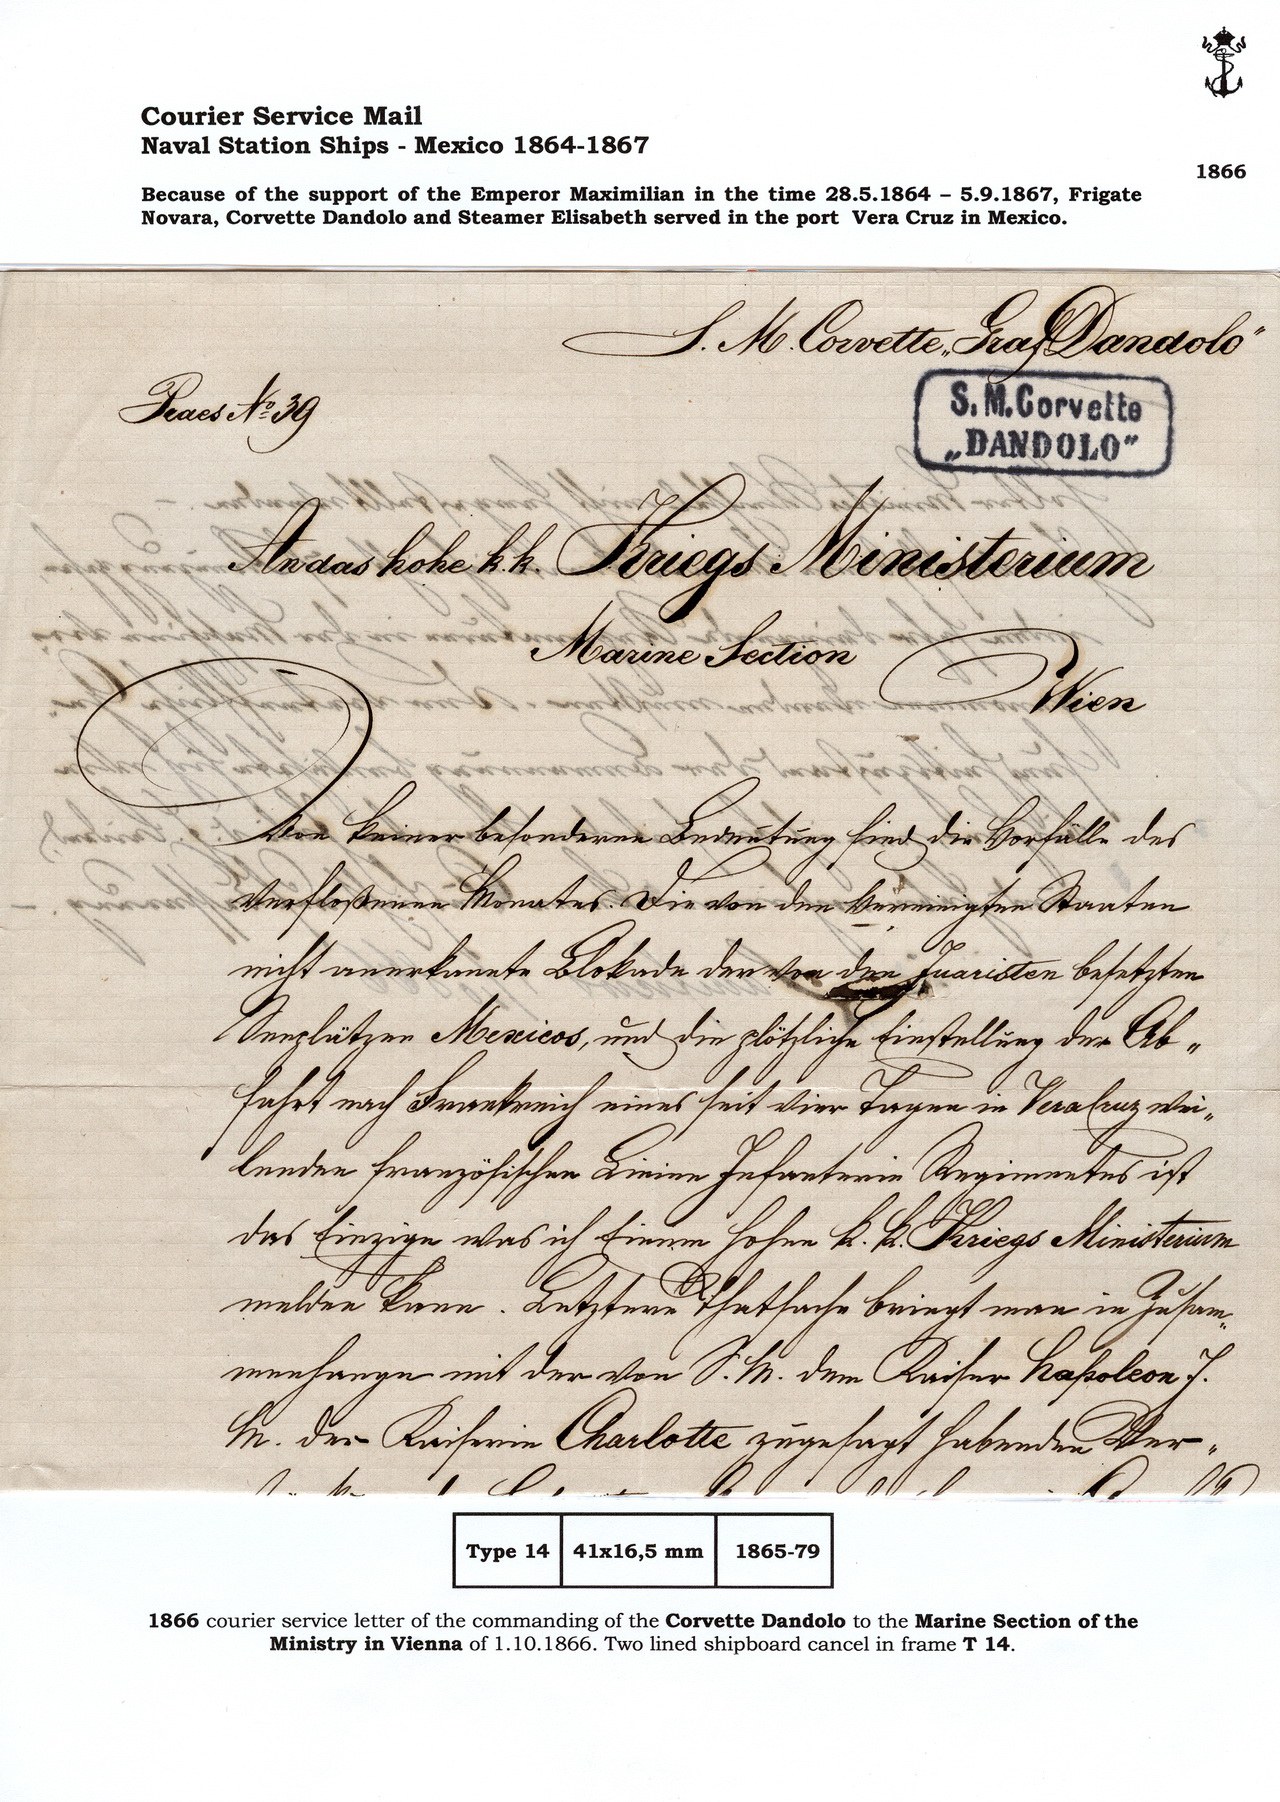 Courier Service Mail
Naval Station Ships - Mexico 1864-1867
1866
Because of the support of the Emperor Maximilian in the time 28.5.1864 – 5.9.1867, Frigate
Novara, Corvette Dandolo and Steamer Elisabeth served in the port Vera Cruz in Mexico.
S. M. Corvette „Graf Dandolo"
Praes № 39
S. M. Corvette
„DANDOLO"
An das hohe k. k. Kriegs Ministerium
Marine Section
Wien
Von keiner besonderen Bedeutung sind die Vorfälle des
verfloßenen Monates. Die von den Vereinigten Staaten
nicht anerkannte Blokade der von den Juaristen besetzten
Seeplätzen Mexicos, und die plötzliche Einstellung der Ab„
fahrt nach Frankreich eines seit vier Tagen in Vera Cruz wei„
lenden französischen Linien Infanterie Regimentes ist
das Einzige was ich Einem hohen k. k. Kriegs Ministerium
melden kann. Letztere Thatsache bringt man in Zusam„
menhange mit der von S. M. dem Kaiser Napoleon I.
M. der Kaiserin Charlotte zugesagt habenden Ver„
Type 14 41x16,5 mm 1865-79
1866 courier service letter of the commanding of the Corvette Dandolo to the Marine Section of the
Ministry in Vienna of 1.10.1866. Two lined shipboard cancel in frame T 14.